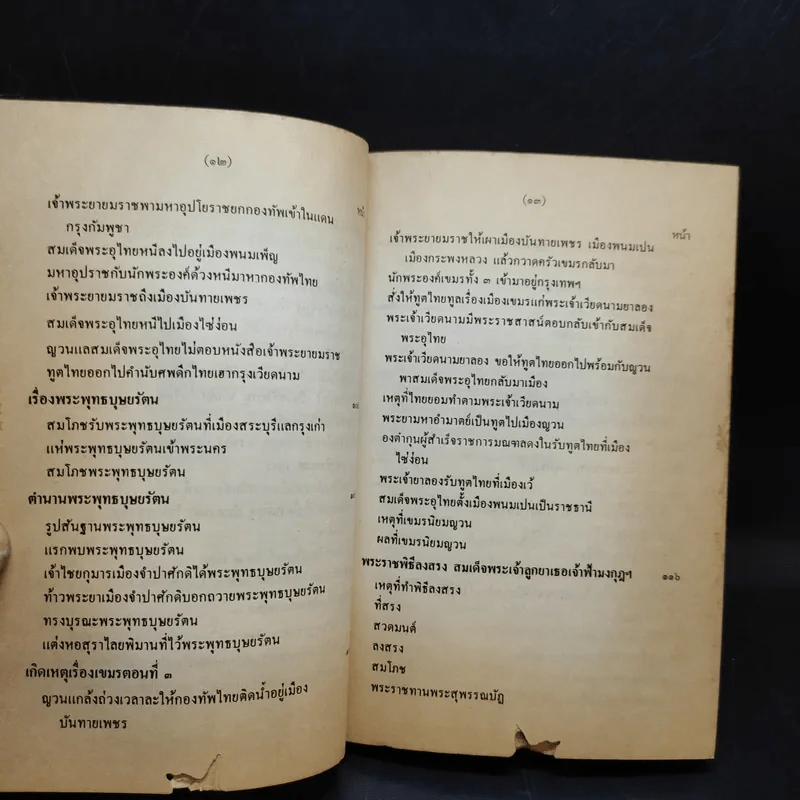 (๑๒)
เจ้าพระยายมราชพามหาอุปโยราชยกกองทัพเข้าในแดน
กรุงกัมพูชา
สมเด็จพระอุไทยหนีลงไปอยู่เมืองพนมเพ็ญ
มหาอุปราชกับนักพระองค์ด้วงหนีมาหากองทัพไทย
เจ้าพระยายมราชถึงเมืองบันทายเพชร
สมเด็จพระอุไทยหนีไปเมืองไซ่ง่อน
ญวนแลสมเด็จพระอุไทยไม่ตอบหนังสือเจ้าพระยายมราช
ทูตไทยออกไปคำนับศพตึกไทยเฮากรุงเวียดนาม
เรื่องพระพุทธบุษยรัตน
สมโภชรับพระพุทธบุษยรัตนที่เมืองสระบุรีแลกรุงเก่า
แห่พระพุทธบุษยรัตนเข้าพระนคร
สมโภชพระพุทธบุษยรัตน
ตำนานพระพุทธบุษยรัตน
รูปสันฐานพระพุทธบุษยรัตน
แรกพบพระพุทธบุษยรัตน
เจ้าไชยกุมารเมืองจำปาศักดิได้พระพุทธบุษยรัตน
ท้าวพระยาเมืองจำปาศักดิบอกถวายพระพุทธบุษยรัตน
ทรงบุรณะพระพุทธบุษยรัตน
แต่งหอสุราไลยพิมานที่ไว้พระพุทธบุษยรัตน
เกิดเหตุเรื่องเขมรตอนที่ ๓
ญวนแกล้งถ่วงเวลาละให้กองทัพไทยติดน้ำอยู่เมือง
บันทายเพชร
(๑๓)
หน้า
เจ้าพระยายมราชให้เผาเมืองบันทายเพชร เมืองพนมเปน
เมืองกระพงหลวง แล้วกวาดครัวเขมรกลับมา
นักพระองค์เขมรทั้ง ๓ เข้ามาอยู่กรุงเทพฯ
สั่งให้ทูตไทยทูลเรื่องเมืองเขมรแก่พระเจ้าเวียดนามยาลอง
พระเจ้าเวียดนามมีพระราชสาสน์ตอบกลับเข้ากับสมเด็จ
พระอุไทย
พระเจ้าเวียดนามยาลอง ขอให้ทูตไทยออกไปพร้อมกับญวน
พาสมเด็จพระอุไทยกลับมาเมือง
เหตุที่ไทยยอมทำตามพระเจ้าเวียดนาม
พระยามหาอำมาตย์เป็นทูตไปเมืองญวน
องต๋ากุนผู้สำเร็จราชการมณฑลดงในรับทูตไทยที่เมือง
ไซ่ง่อน
พระเจ้ายาลองรับทูตไทยที่เมืองเว้
สมเด็จพระอุไทยตั้งเมืองพนมเปนเป็นราชธานี
เหตุที่เขมรนิยมญวน
ผลที่เขมรนิยมญวน
พระราชพิธีลงสรง สมเด็จพระเจ้าลูกยาเธอเจ้าฟ้ามงกุฎฯ ๑๑๖
เหตุที่ทำพิธีลงสรง
ที่สรง
สวดมนต์
ลงสรง
สมโภช
พระราชทานพระสุพรรณบัฏ